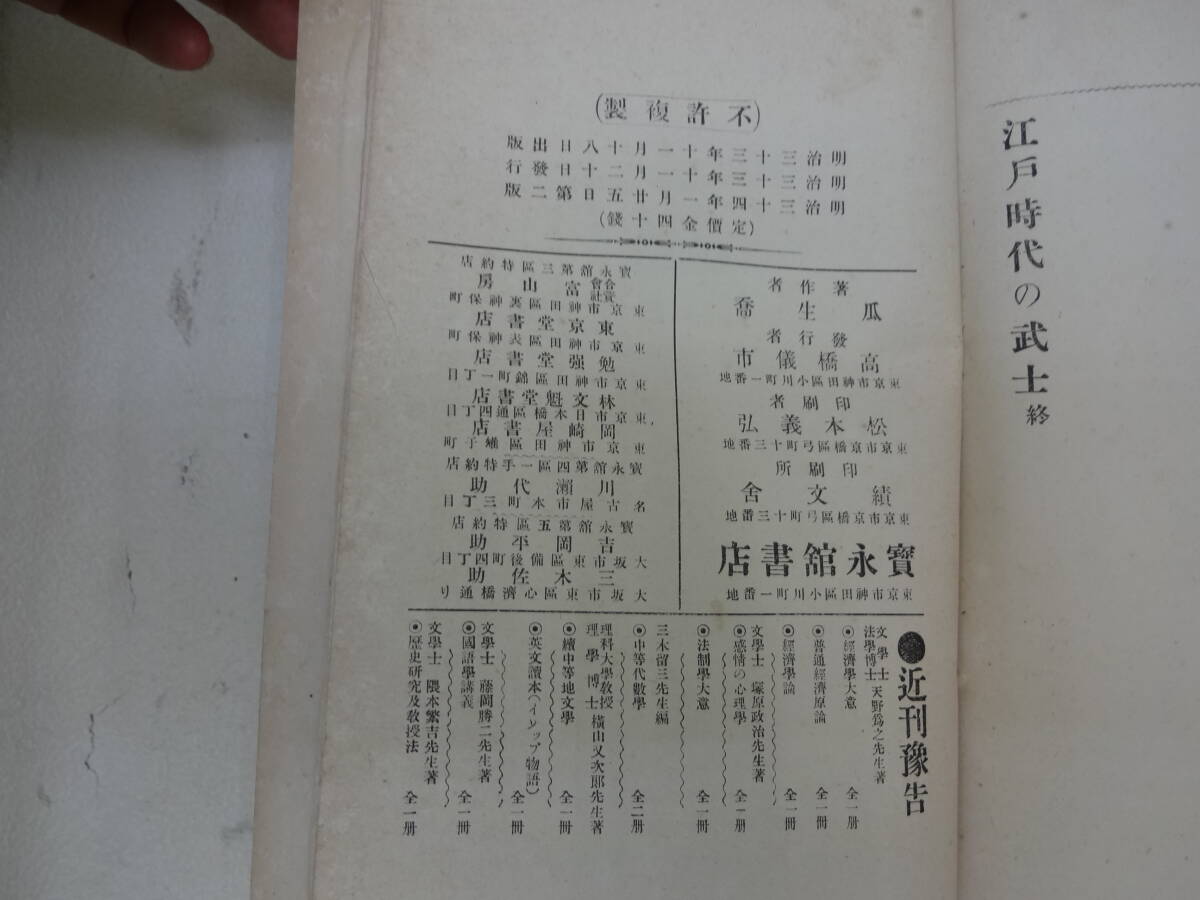 江戸時代の武士終
(不許複製)
明治三十三年十一月十八日出版
明治三十三年十一月二十日發行
明治三十四年一月廿五日第二版
(定價金四十錢)
著作者
瓜生喬
發行者
高橋儀市
東京市神田區小川町一番地
印刷者
松本義弘
東京市京橋區弓町十三番地
印刷所
績文舍
東京市京橋區弓町十三番地
寶永舘書店
東京市神田區小川町一番地
寶永舘第三區特約店
合資會社冨山房
東京市神田區裏神保町
東京堂書店
東京市神田區表神保町
勉强堂書店
東京市神田區錦町一丁目
林文魁堂書店
東京市日本橋區通四丁目
岡崎屋書店
東京市神田區
寶永舘第四區一手特約店
川瀨代助
名古屋市本町三丁目
寶永舘第五區特約店
吉岡平助
大坂市東區備後町四丁目
三木佐助
大坂市東區心濟橋通り
●近刊豫告
文學士法學博士天野爲之先生著
◉經濟學大意 全一册
◉普通經濟原論 全一冊
◉經濟學論 全一冊
文學士塚原政治先生著
◉感情の心理學 全一册
◉法制學大意 全一冊
三木留三先生編
◉中等代數學 全二册
理科大學敎授理學博士橫山又次郎先生著
◉續中等地文學 全一冊
◉英文讀本(イソップ物語) 全一冊
文學士藤岡勝二先生著
◉國語學講義 全一冊
文學士隈本繁吉先生著
◉歷史硏究及敎授法 全一册